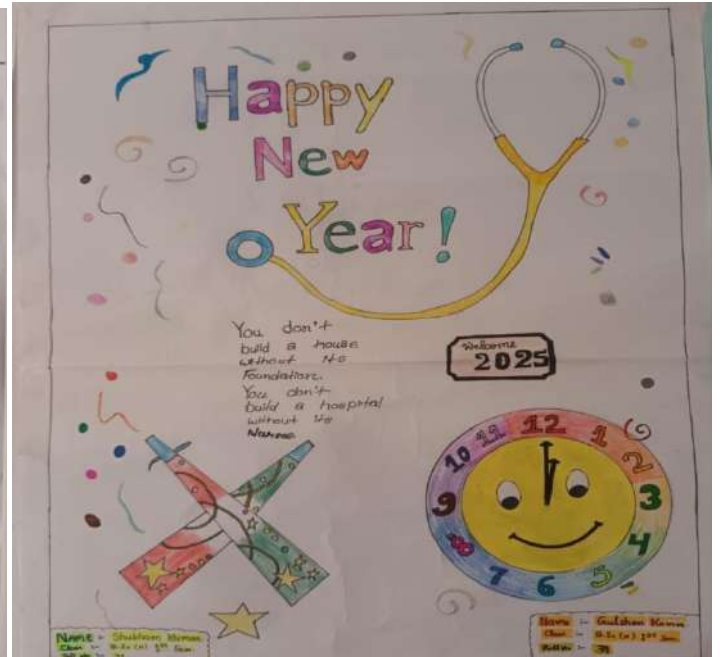 Happy
New
Year!
You don't
build a house
without its
Foundation.
You don't
build a hospital
without its
Nurses
Welcome
2025
12
1
2
3
4
5
6
7
9
10
11
NAME :- Shubham Kumar
Class :- B.Sc (N) 1st Sem
Roll No :-
Name :- Gulshan
Class :- B.Sc (N) 1st Sem
Roll No :-